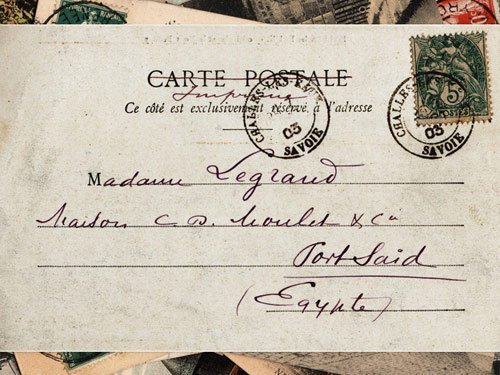 CARTE POSTALE
Imprimé
Ce côté est exclusivement réservé à l'adresse
CHALLES-LES-EAUX
03
SAVOIE
CHALLES
03
SAVOIE
5
Madame Legrand
Maison C. D. Moulet & Cie
Port Saïd
(Egypte)